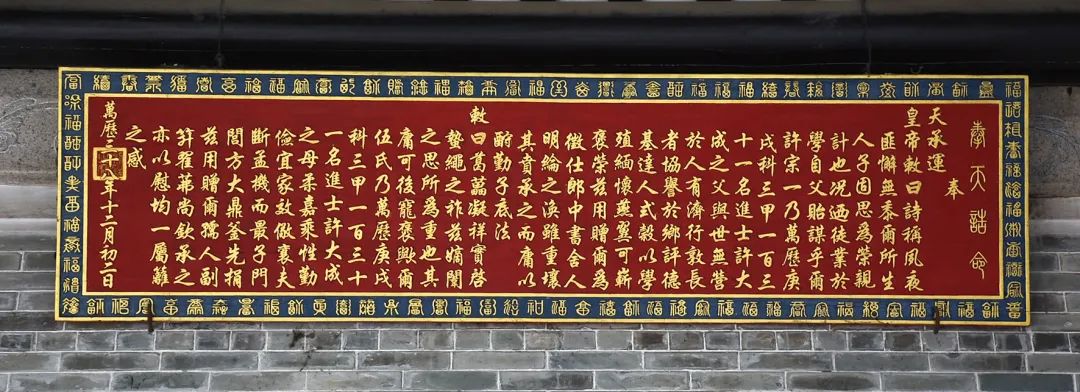 奉天誥命
奉
天承運
皇帝敕曰詩稱夙夜
匪懈無忝爾所生
人子固思為榮親
計也況迺徒業於
學自父貽謀乎爾
許宗一乃萬曆庚
戌科三甲一百三
十一名進士許大
成之父與世無營
於人有濟行敦長
者協譽於鄉評德
基達人式穀以學
殖緬懷燕翼可嶄
褒榮茲用贈爾為
徵仕郎中書舍人
明綸之渙雖重壤
其賁承之而庸以
酧勤子底法
敕
曰葛藟凝祥實啓
螽繩之祚茲嫡閫
之思所為重也其
庸可後寵褒歟爾
伍氏乃萬曆庚戌
科三甲一百三十
一名進士許大成
之母柔嘉秉性勤
儉宜家敦倣裏夫
斷孟機而最子門
閭方大鼎釜先捐
茲用贈爾孺人副
笄雅茀尚欽承之
亦以慰均一屬離
之感
萬歷三十八年十二月初二日